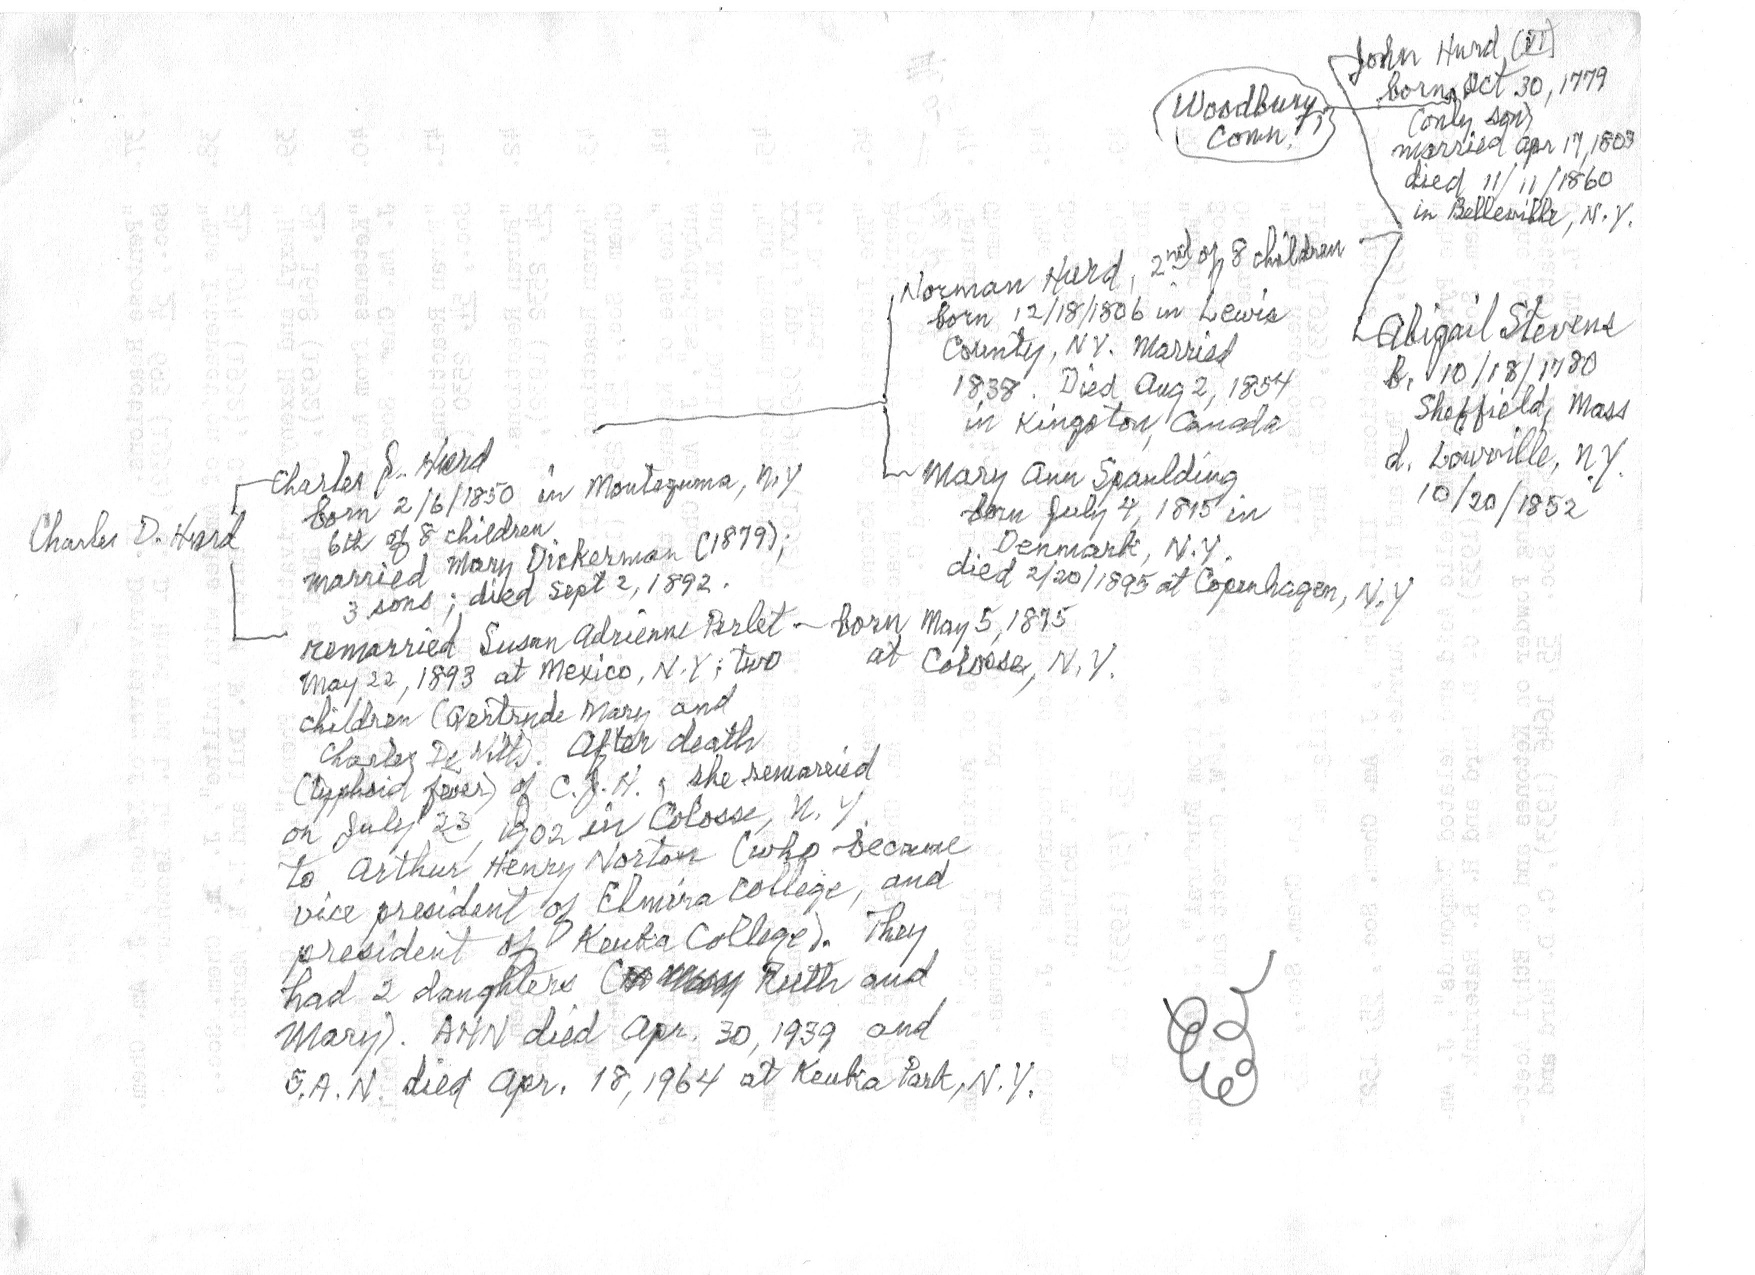 John Hurd (VI)
born Oct 30, 1779
(only son)
married Apr 17, 1803
died 11/11/1860
in Belleville, N.Y.
Woodbury,
Conn.
Norman Hurd, 2nd of 8 children
born 12/18/1806 in Lewis
County, NY. Married
1838. Died Aug 2, 1854
in Kingston, Canada
Abigail Stevens
b. 10/18/1780
Sheffield, Mass
d. Lowville, N.Y.
10/20/1852
Mary Ann Spaulding
born July 4, 1815 in
Denmark, N.Y.
died 2/20/1895 at Copenhagen, N.Y
Charles D. Hurd
Charles J. Hurd
born 2/6/1850 in Montezuma, N.Y
6th of 8 children
married Mary Dickerman (1879);
3 sons; died Sept 2, 1892.
remarried Susan Adrienne Perlet – born May 5, 1875
at Colosse, N.Y.
May 22, 1893 at Mexico, N.Y; two
children (Gertrude Mary and
Charles DeWitt). After death
(typhoid fever) of C.J.H., she remarried
on July 23, 1902 in Colosse, N.Y
to Arthur Henry Norton (who became
vice president of Elmira College, and
president of Keuka College). They
had 2 daughters (Ruth and
Mary). AHN died Apr. 30, 1939 and
S.A.N. died Apr. 18, 1964 at Keuka Park, N.Y.